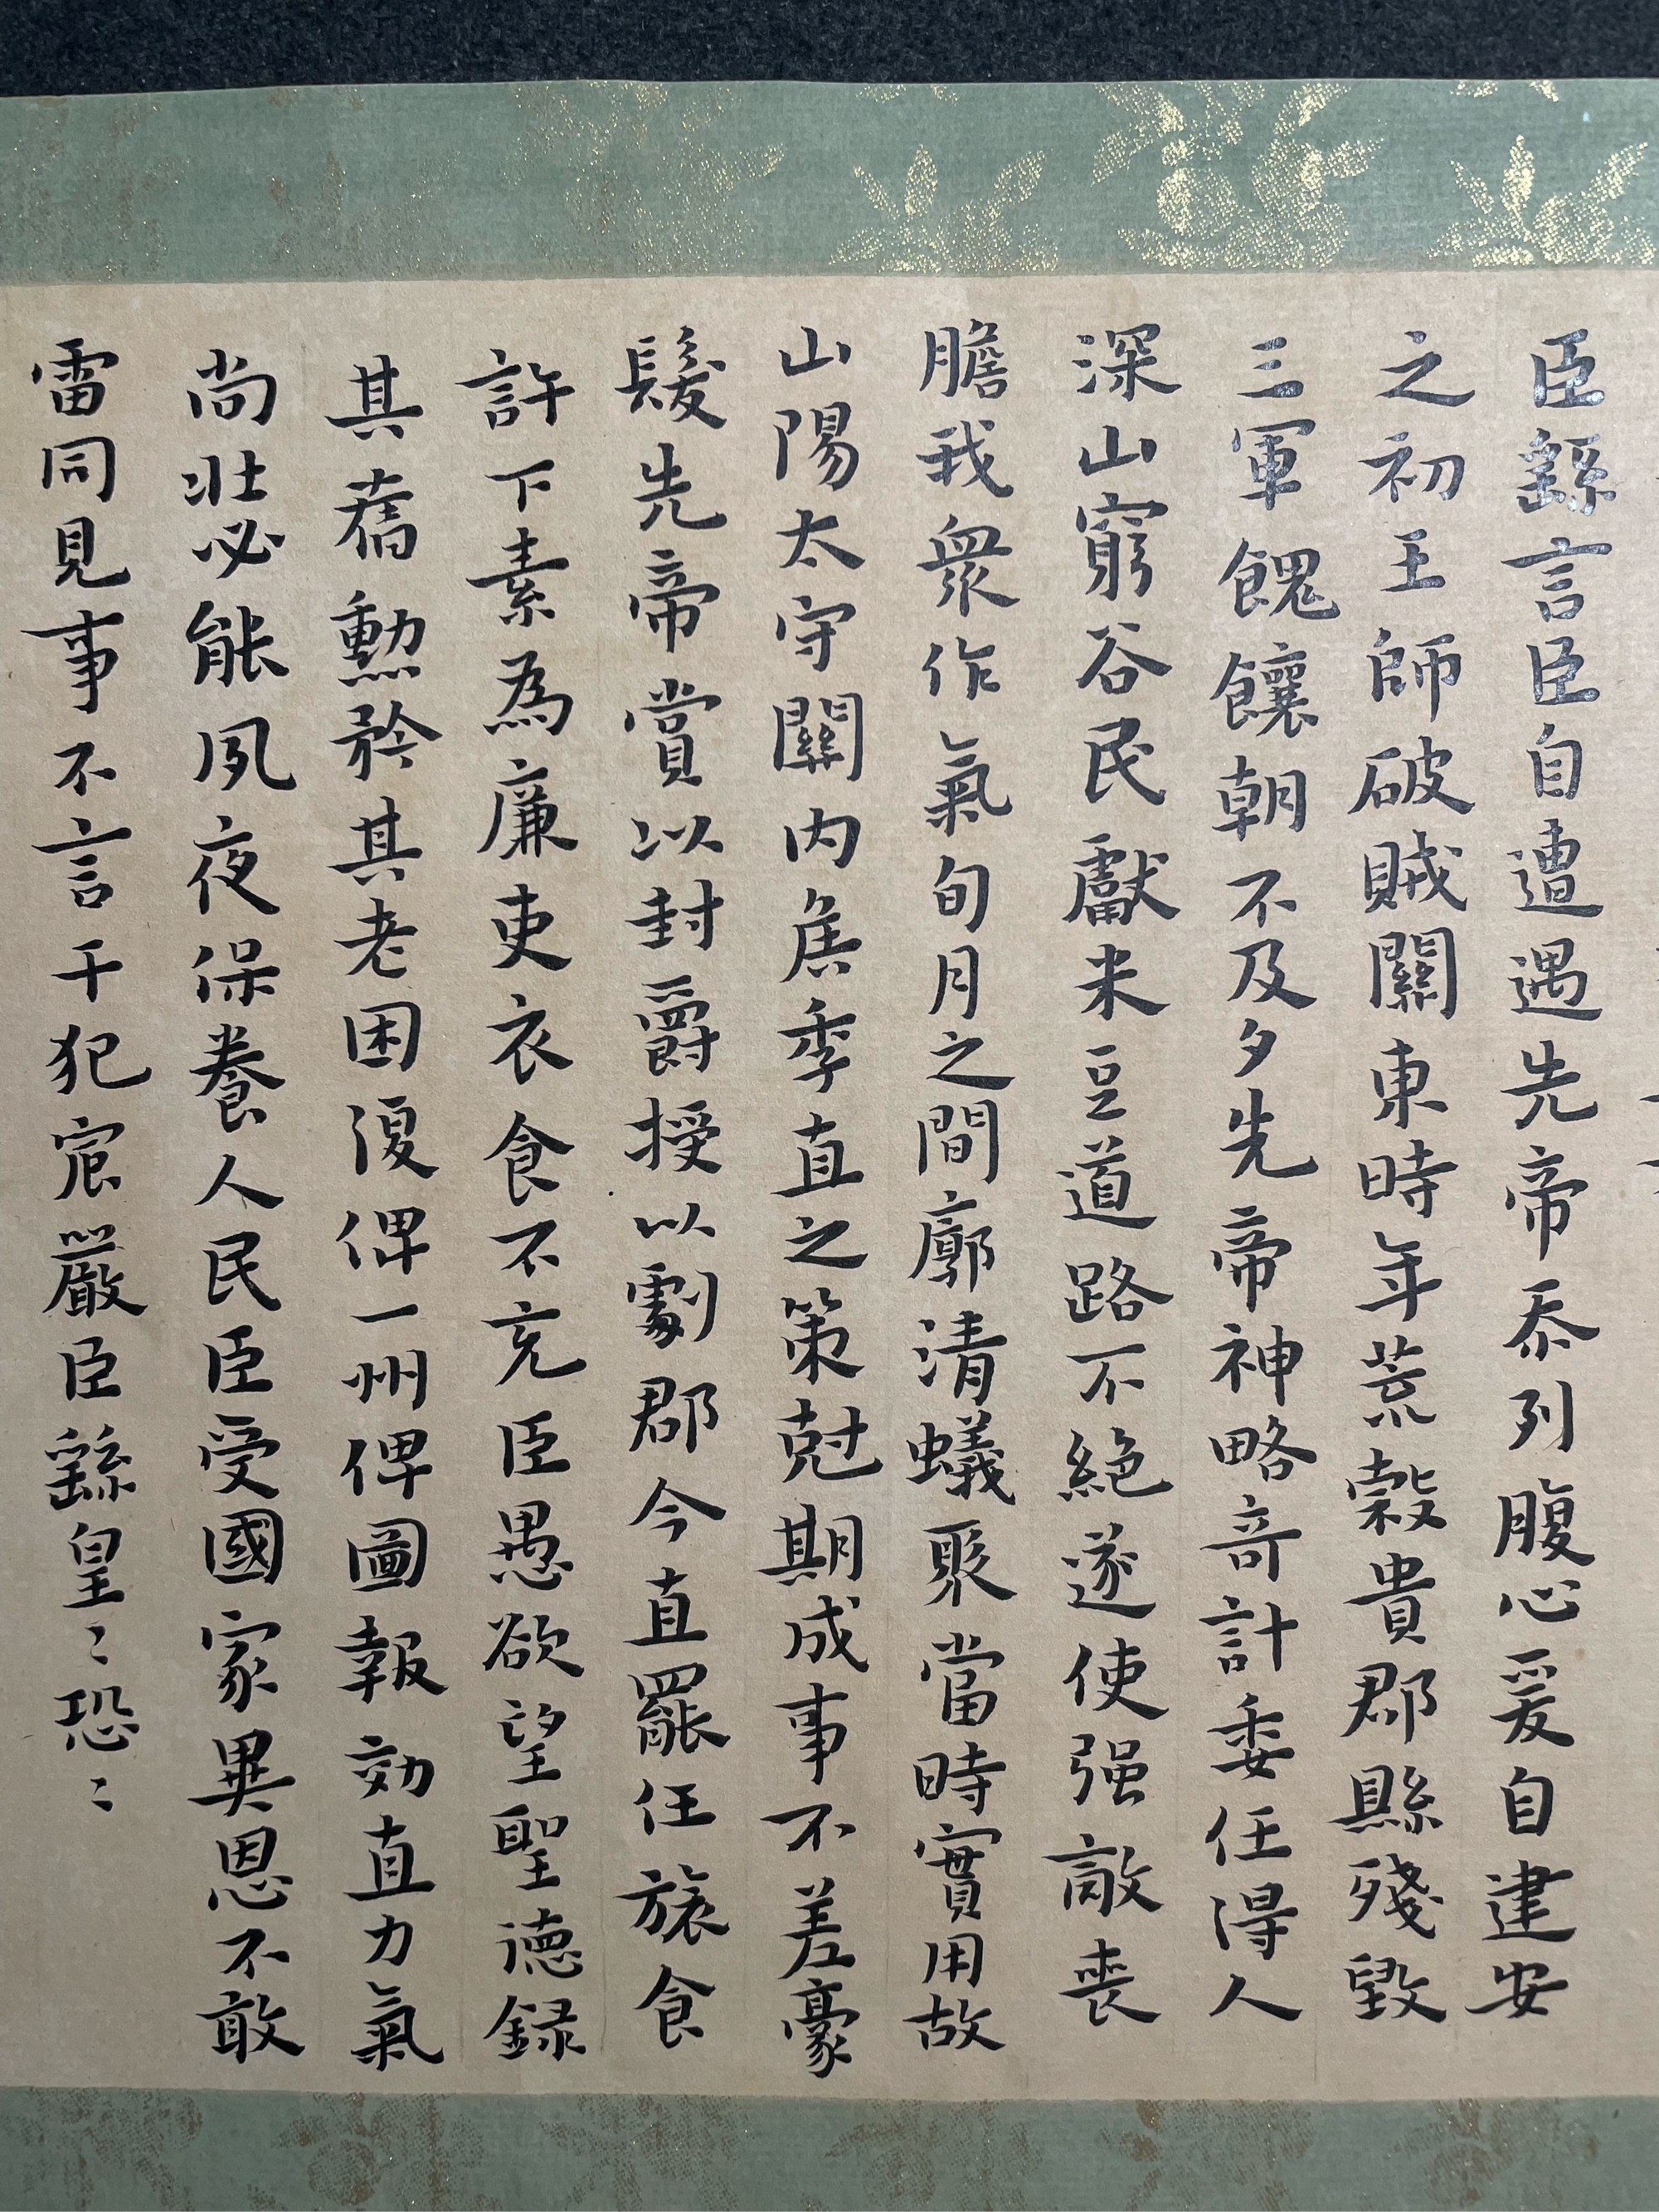 臣繇言臣自遭遇先帝忝列腹心爰自建安
之初王師破賊關東時年荒穀貴郡縣殘毀
三軍餽饟朝不及夕先帝神略奇計委任得人
深山窮谷民獻米豆道路不絕遂使强敵喪
膽我衆作氣旬月之間廓清蟻聚當時實用故
山陽太守關內侯季直之策尅期成事不差豪
髮先帝賞以封爵授以劇郡今直罷任旅食
許下素為廉吏衣食不充臣愚欲望聖德錄
其舊勳矜其老困復俾一州俾圖報効直力氣
尚壯必能夙夜保養人民臣受國家異恩不敢
雷同見事不言干犯宸嚴臣繇皇〻恐〻